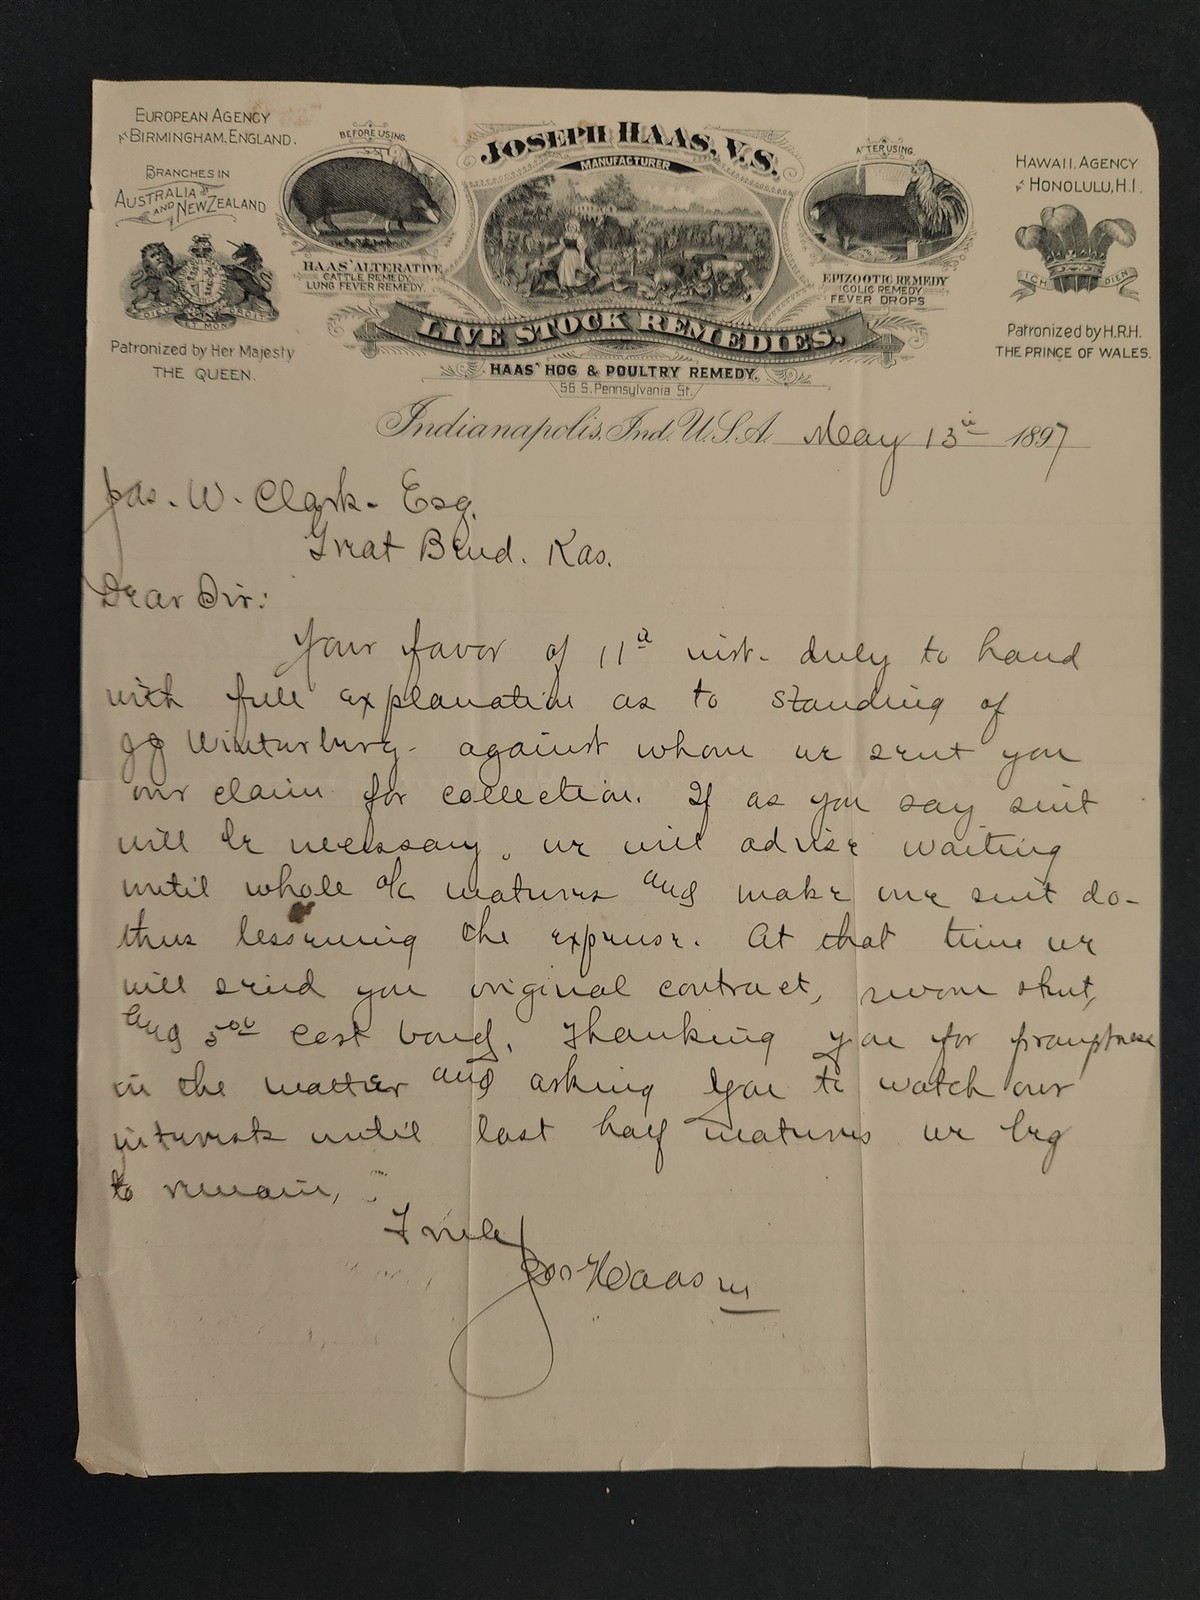 EUROPEAN AGENCY
AT BIRMINGHAM, ENGLAND.
BRANCHES IN
AUSTRALIA
AND NEW ZEALAND
DIEU ET MON DROIT
Patronized by Her Majesty
THE QUEEN.
BEFORE USING.
HAAS' ALTERATIVE
CATTLE REMEDY
LUNG FEVER REMEDY.
JOSEPH HAAS, V.S.
MANUFACTURER
LIVE STOCK REMEDIES.
HAAS' HOG & POULTRY REMEDY.
56 S. Pennsylvania St.
AFTER USING.
EPIZOOTIC REMEDY
COLIC REMEDY
FEVER DROPS
HAWAII, AGENCY
AT HONOLULU, H.I.
ICH DIEN
Patronized by H.R.H.
THE PRINCE OF WALES.
Indianapolis, Ind. U.S.A. May 13th 1897
Jas. W. Clark. Esq.
Great Bend. Kas.
Dear Sir:
Your favor of 11th inst. duly to hand
with full explanation as to standing of
JJ Winterburg. against whom we sent you
our claim for collection. If as you say suit
will be necessary, we will advise waiting
until whole a/c matures and make one suit do-
thus lessening the expense. At that time we
will send you original contract, sworn stmt,
and 5 00 cost bond. Thanking you for promptness
in the matter and asking you to watch our
interests until last half matures we beg
to remain,
Truly
Jos Haas